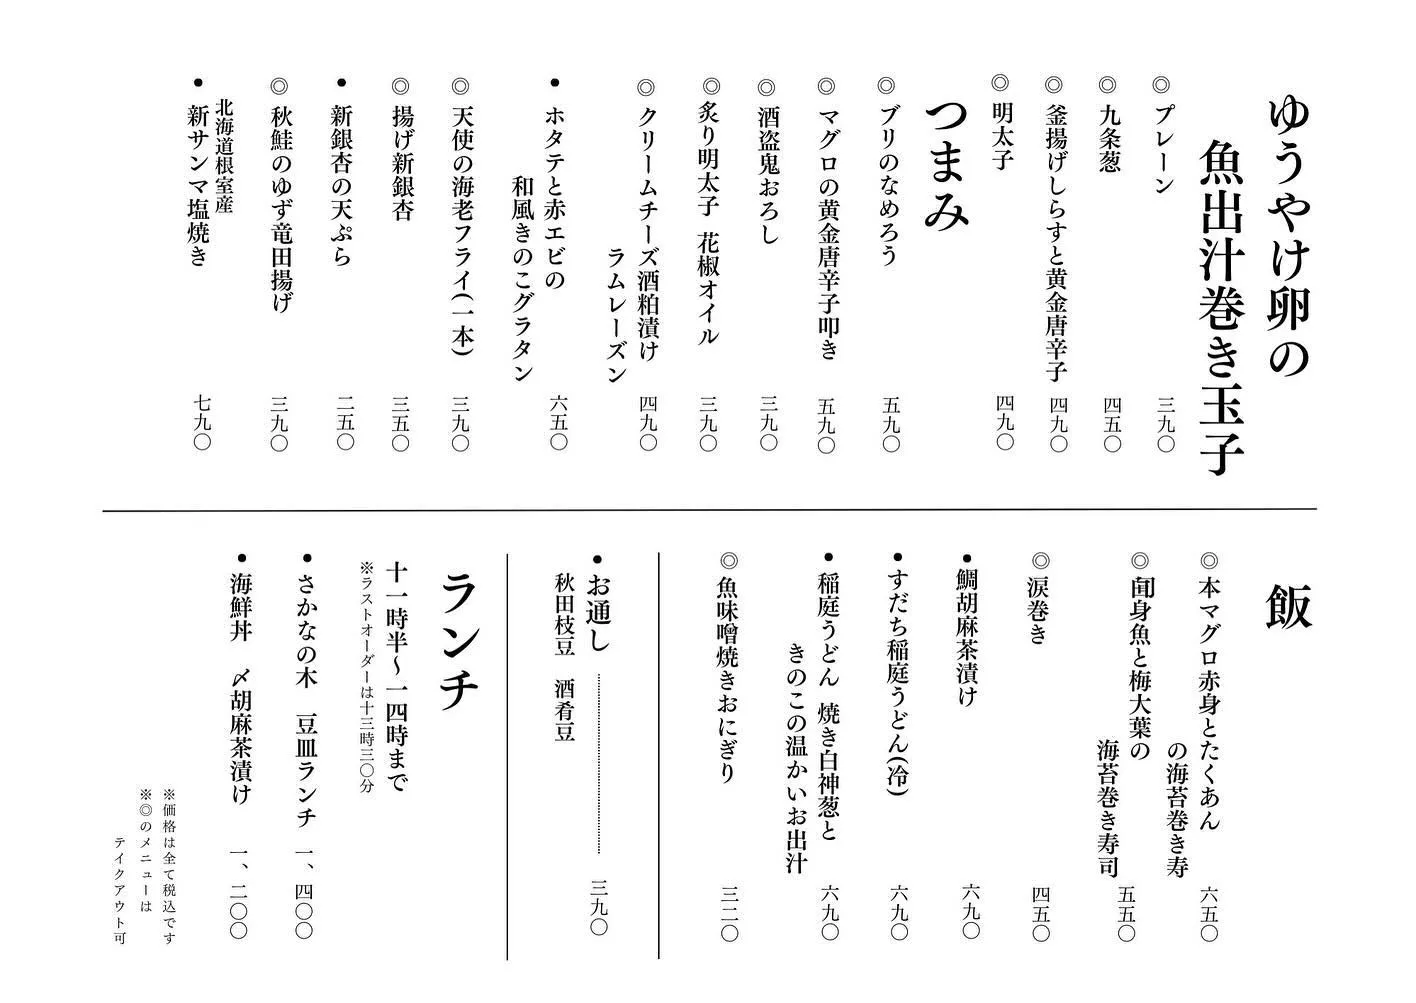 ゆうやけ卵の
魚出汁巻き玉子
◎プレーン 三九〇
◎九条葱 四五〇
◎釜揚げしらすと黄金唐辛子 四九〇
◎明太子 四九〇
つまみ
◎ブリのなめろう 五九〇
◎マグロの黄金唐辛子叩き 五九〇
◎酒盗鬼おろし 三九〇
◎炙り明太子 花椒オイル 三九〇
◎クリームチーズ酒粕漬け 四九〇
ラムレーズン
●ホタテと赤エビの 六五〇
和風きのこグラタン
◎天使の海老フライ(一本) 三九〇
◎揚げ新銀杏 三五〇
●新銀杏の天ぷら 二五〇
◎秋鮭のゆず竜田揚げ 三九〇
北海道根室産
●新サンマ塩焼き 七九〇
飯
◎本マグロ赤身とたくあん 六五〇
の海苔巻き寿
◎身魚と梅大葉の 五五〇
海苔巻き寿司
◎涙巻き 四五〇
●鯛胡麻茶漬け 六九〇
●すだち稲庭うどん(冷) 六九〇
●稲庭うどん 焼き白神葱と 六九〇
きのこの温かいお出汁
◎魚味噌焼きおにぎり 三二〇
●お通し 三九〇
秋田枝豆 酒肴豆
ランチ
十一時半〜一四時まで
※ラストオーダーは十三時三〇分
●さかなの木 豆皿ランチ 一、四〇〇
●海鮮丼 〆胡麻茶漬け 一、二〇〇
※価格は全て税込です
※◎のメニューは
テイクアウト可